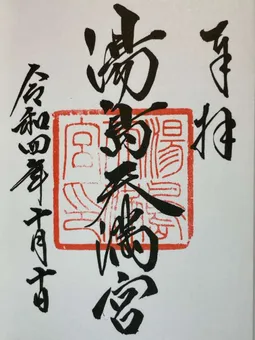 奉拝
湯島天満宮
令和四年十月十日
湯島
宮印